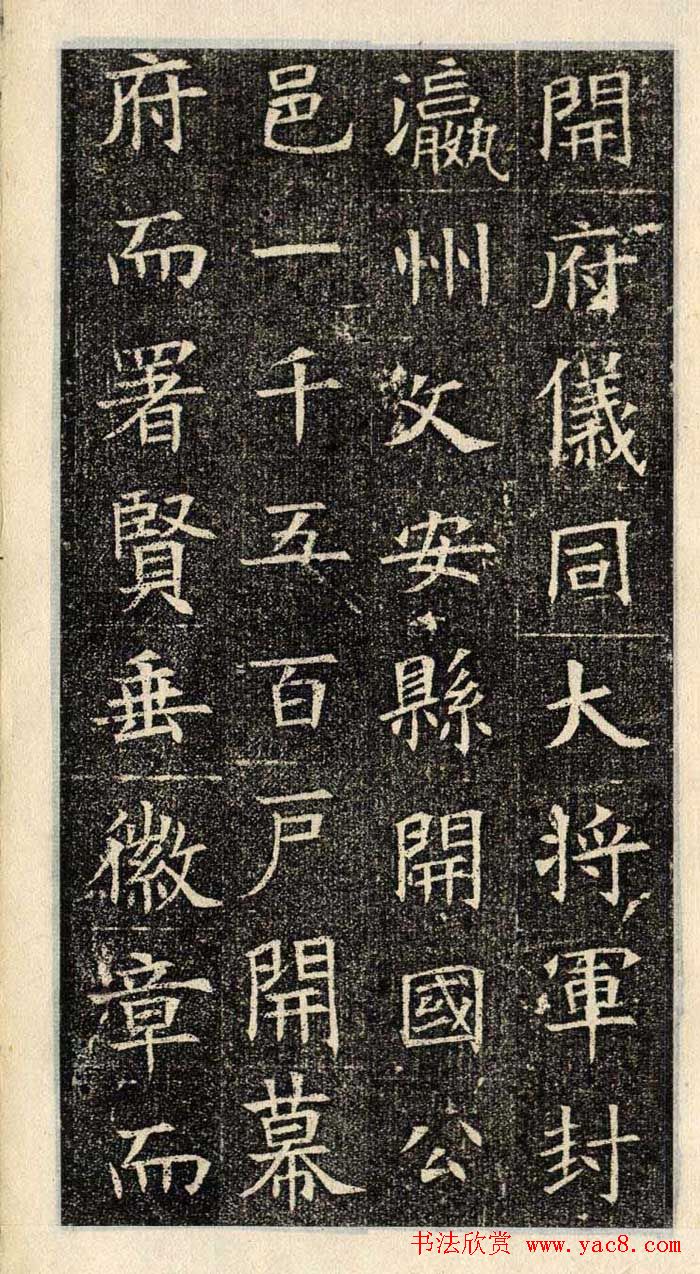 開府儀同大将軍封
瀛州文安縣開國公
邑一千五百戸開幕
府而署賢垂徽章而
书法欣赏 www.yac8.com